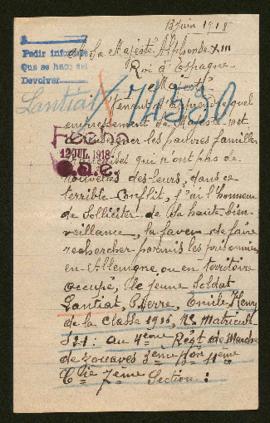 13 Juin 1918
Pedir informes
Que se haga
Devolver
Sa Majesté Alphonse XIII
Roi d'Espagne
Majesté
Lantiat 74530
empressement Sa Majesté met
les pauvres familles
qui n'ont pas de
nouvelles des leurs, dans ce
Fecha
12 JUL. 1918
terrible Conflit, j'ai l'honneur
de Solliciter de Sa haute bien-
veillance, la faveur de faire
rechercher parmis les prisonniers
en Allemagne ou en territoire
occupé, le jeune Soldat
Lantiat, Pierre, Emile Henry
de la Classe 1916, Nº Matricule
au 4ème Régt de Marche
de Zouaves 3ème Bon 11ème
Cie 7ème Section :